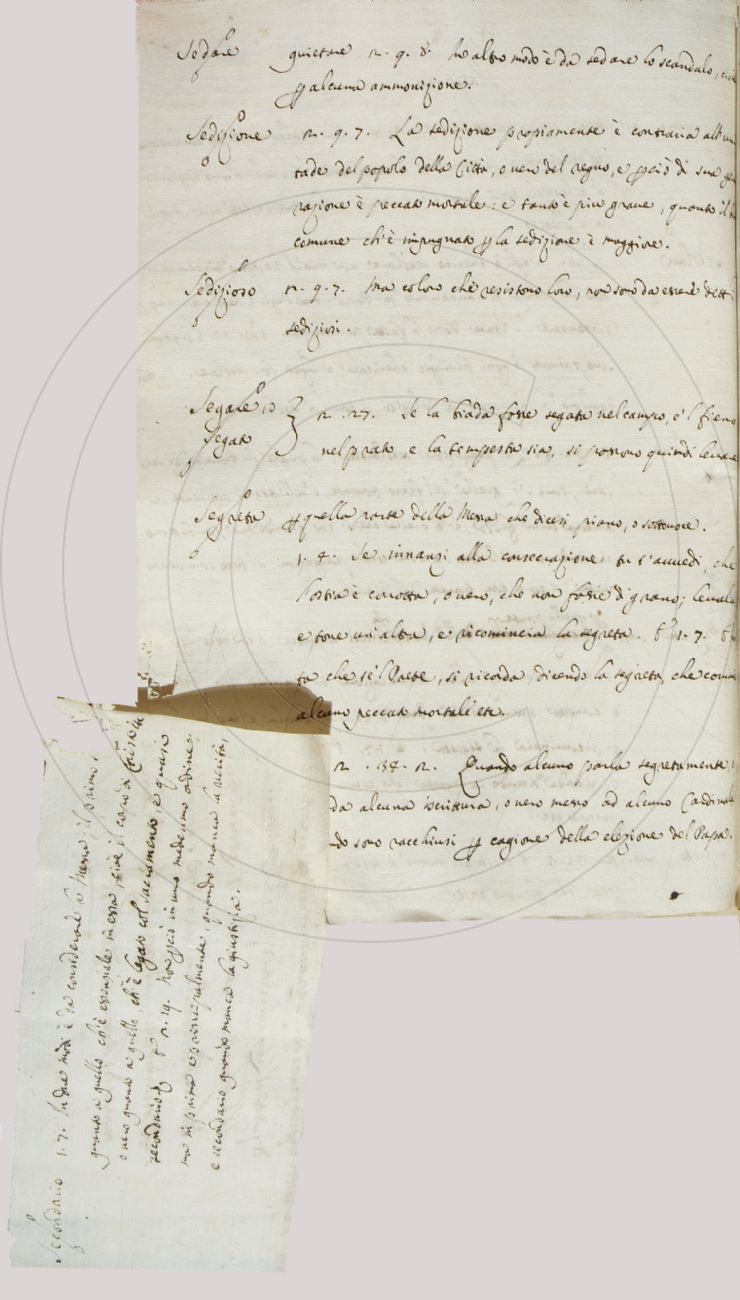 Sedare quietare 2. 9. 8. In altro modo è da sedare lo scandalo,
alcuna ammonizione.
Sedizione 2. 9. 7. La sedizione propiamente è contraria all'
tade del popolo della Città, o vero del regno, e di sua
razione è peccato mortale: e tanto è più grave, quanto il
comune ch'è impugnato la sedizione è maggiore.
Sedizioso 2. 9. 7. Ma coloro che resistono loro, non sono da essere detti
sediziosi.
Segare
Segato
2. 27. Se la biada fosse segata nel campo, e 'l fieno
nel prato, e la tempesta sia, si possono quindi levare
Segreta quella parte della Messa che dicesi piano, o sottovoce.
1. 4. Se innanzi alla consecrazione tu t'avvedi, che
l'ostia è corrotta, o vero, che non fosse di grano; levala
e tone un'altra, e ricomincia la segreta. 1. 7.
ta che se 'l Prete, si ricorda, dicendo la segreta, che
alcuno peccato mortale etc.
2. 134. 2. Quando alcuno parla segretamente
da alcuna iscrittura, o vero messo ad alcuno Cardinale
ndo sono racchiusi cagione della elezione del Papa.
Secondario 1. 7. In due modi è da considerare la Messa: il primo
quanto a quello ch'è essenziale in essa, cioè il corpo di Cristo
o vero quanto a quello, ch'è legato col sacramento e quasi
secondario 2. 19. Non in uno medesimo ordine;
ma in prima e principalmente, quando manca la verità,
e secondario quando manca la giustizia.